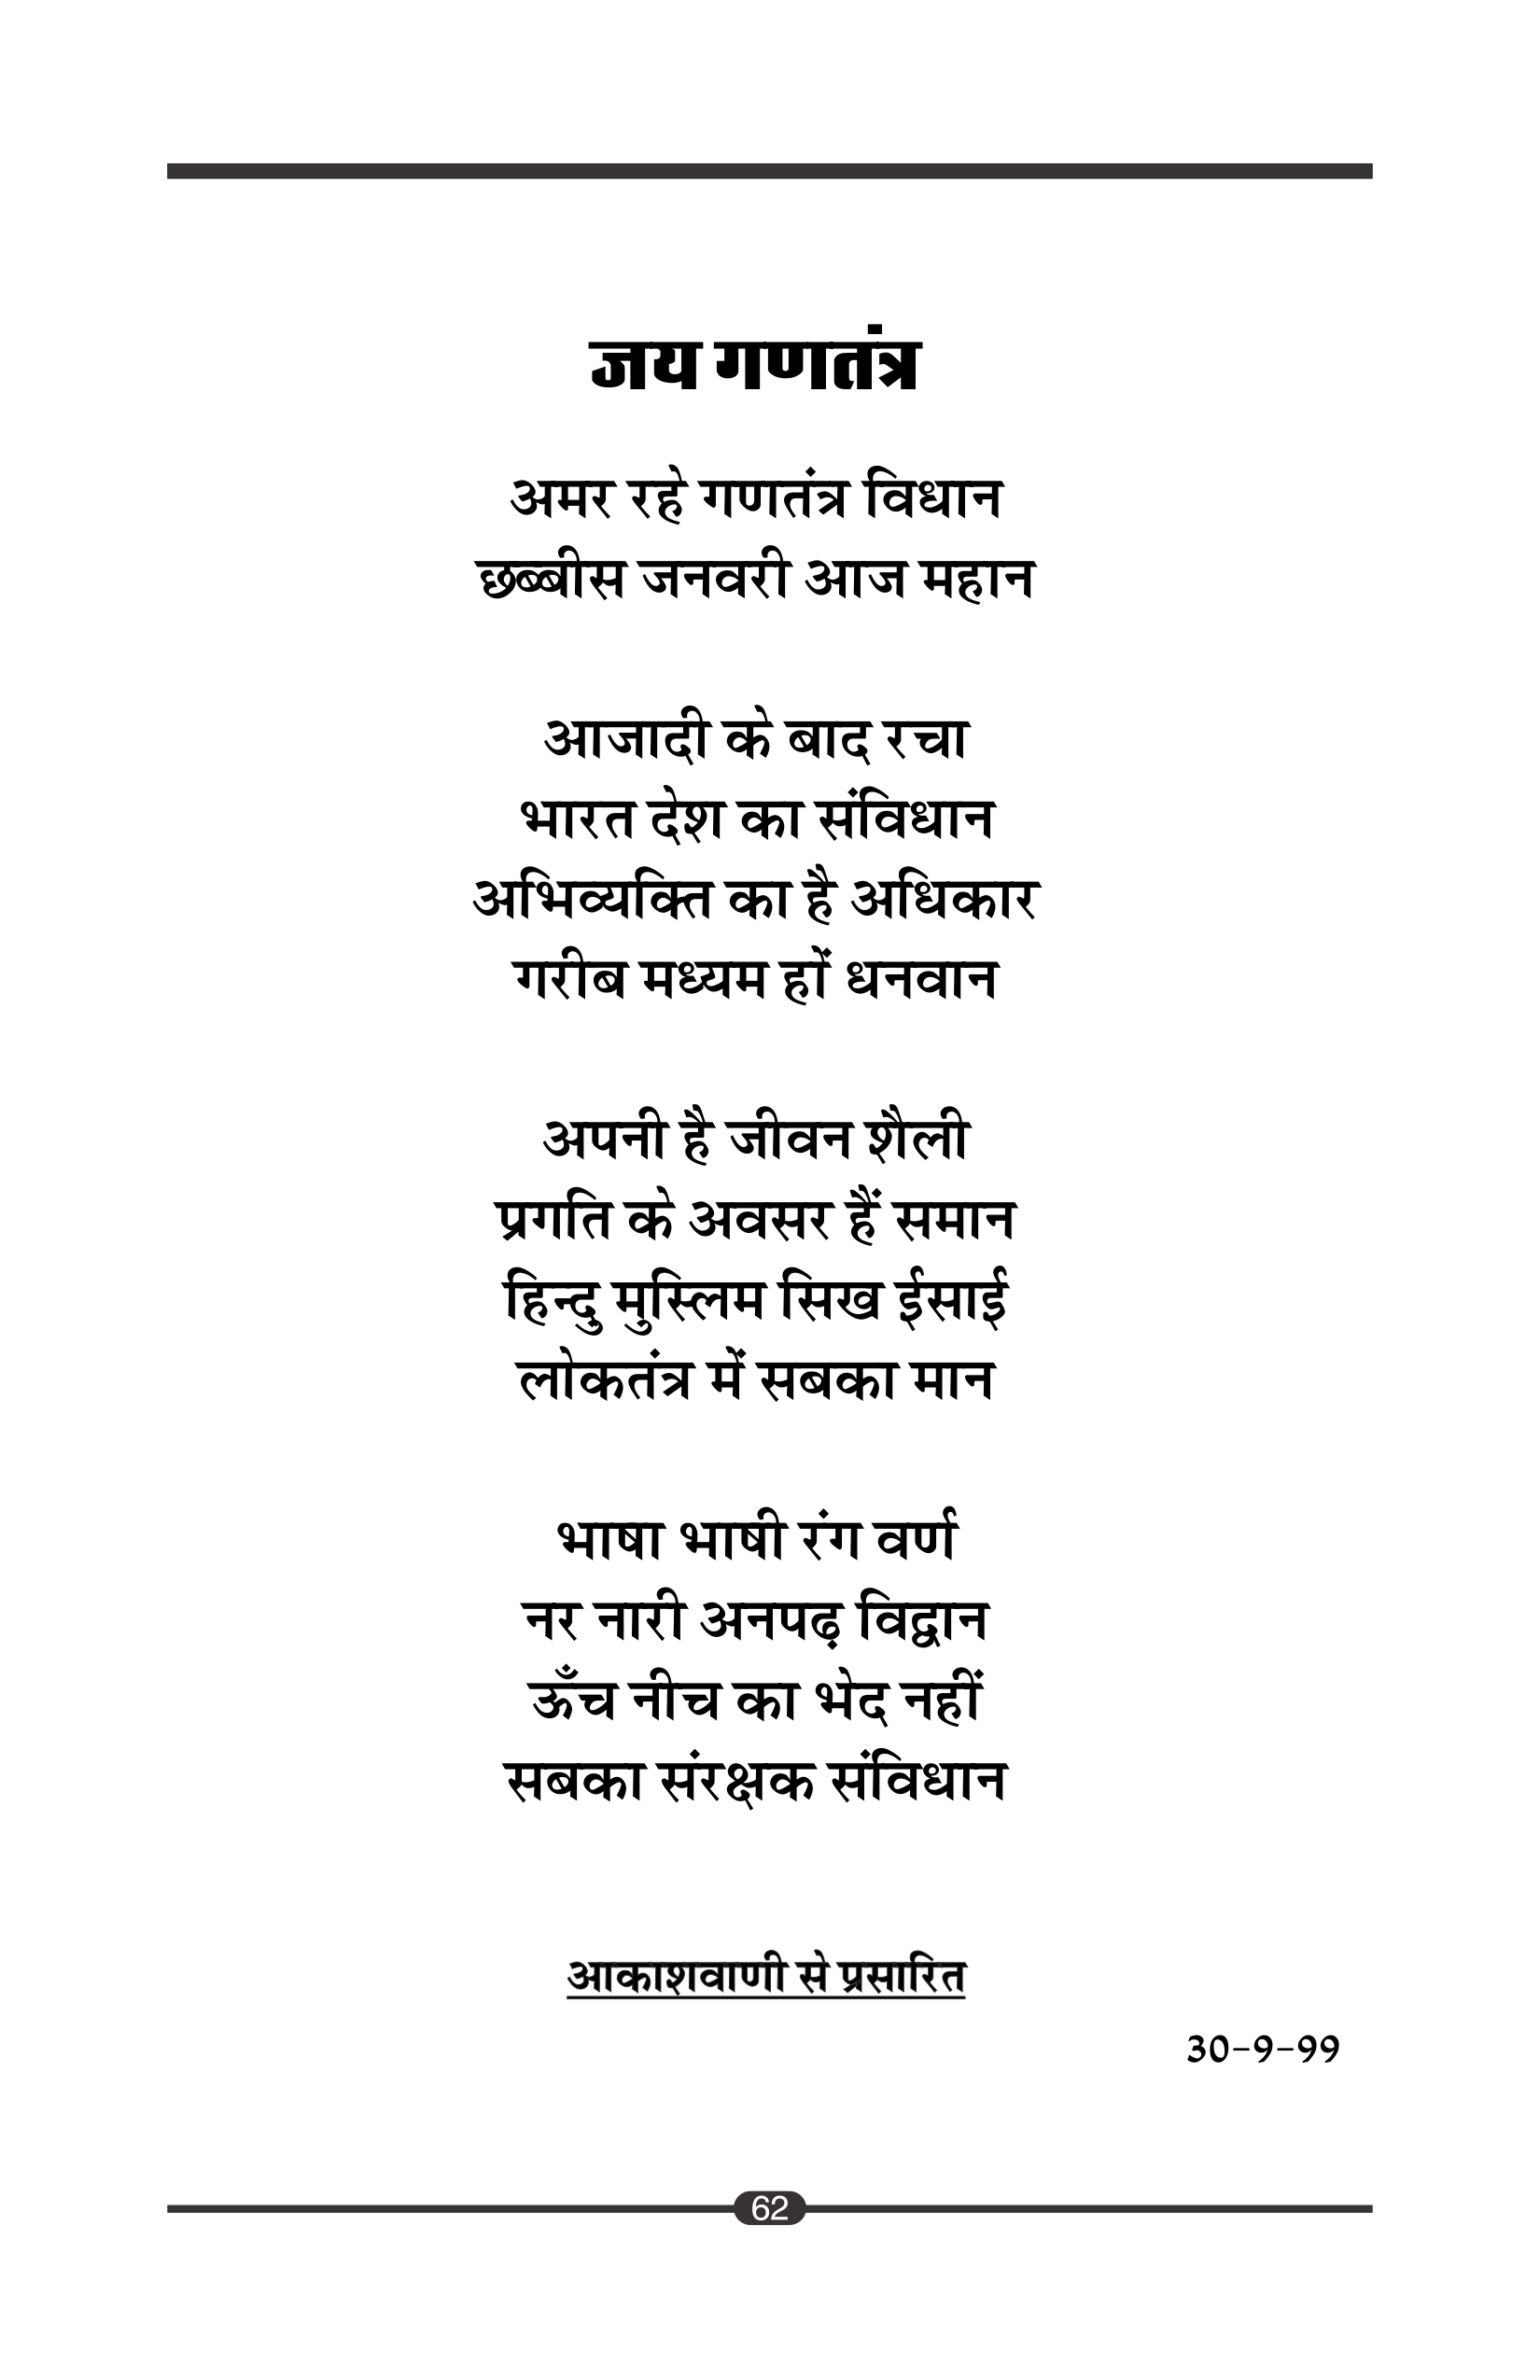 जय गणतंत्र
अमर रहे गणतंत्र विधान
छब्बीस जनवरी आज महान
आजादी के बाद रचा
भारत देश का संविधान
अभिव्यक्ति का है अधिकार
गरीब मध्यम हों धनवान
अपनी है जीवन शैली
प्रगति के अवसर हैं समान
हिन्दु मुस्लिम सिख ईसाई
लोकतंत्र में सबका मान
भाषा भाषी रंग वर्ण
नर नारी अनपढ़ विद्वान
ऊँच नीच का भेद नहीं
सबका संरक्षक संविधान
आकाशवाणी से प्रसारित
30-9-99
62